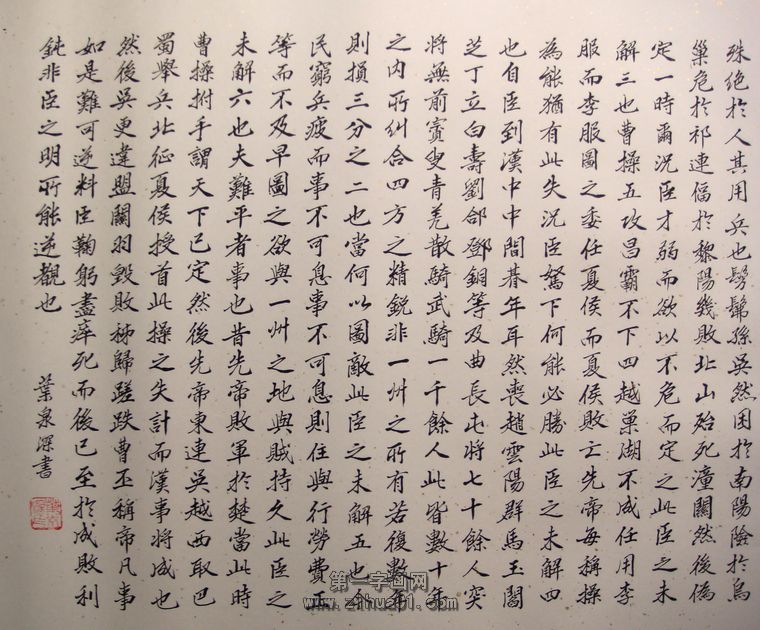 殊絕於人其用兵也髣髴孫吳然困於南陽險於烏
巢危於祁連偪於黎陽幾敗北山殆死潼關然後偽
定一時爾況臣才弱而欲以不危而定之此臣之未
解三也曹操五攻昌霸不下四越巢湖不成任用李
服而李服圖之委任夏侯而夏侯敗亡先帝每稱操
為能猶有此失況臣駑下何能必勝此臣之未解四
也自臣到漢中中間朞年耳然喪趙雲陽群馬玉閻
芝丁立白壽劉郃鄧銅等及曲長屯將七十餘人突
將無前賨叟青羌散騎武騎一千餘人此皆數十年
之內所糾合四方之精銳非一州之所有若復數年
則損三分之二也當何以圖敵此臣之未解五也今
民窮兵疲而事不可息事不可息則住與行勞費正
等而不及早圖之欲與一州之地與賊持久此臣之
未解六也夫難平者事也昔先帝敗軍於楚當此時
曹操拊手謂天下已定然後先帝東連吳越西取巴
蜀舉兵北征夏侯授首此操之失計而漢事將成也
然後吳更違盟關羽毀敗秭歸蹉跌曹丕稱帝凡事
如是難可逆料臣鞠躬盡瘁死而後已至於成敗利
鈍非臣之明所能逆覩也
葉泉深書
第一字画网
www.zihua01.com